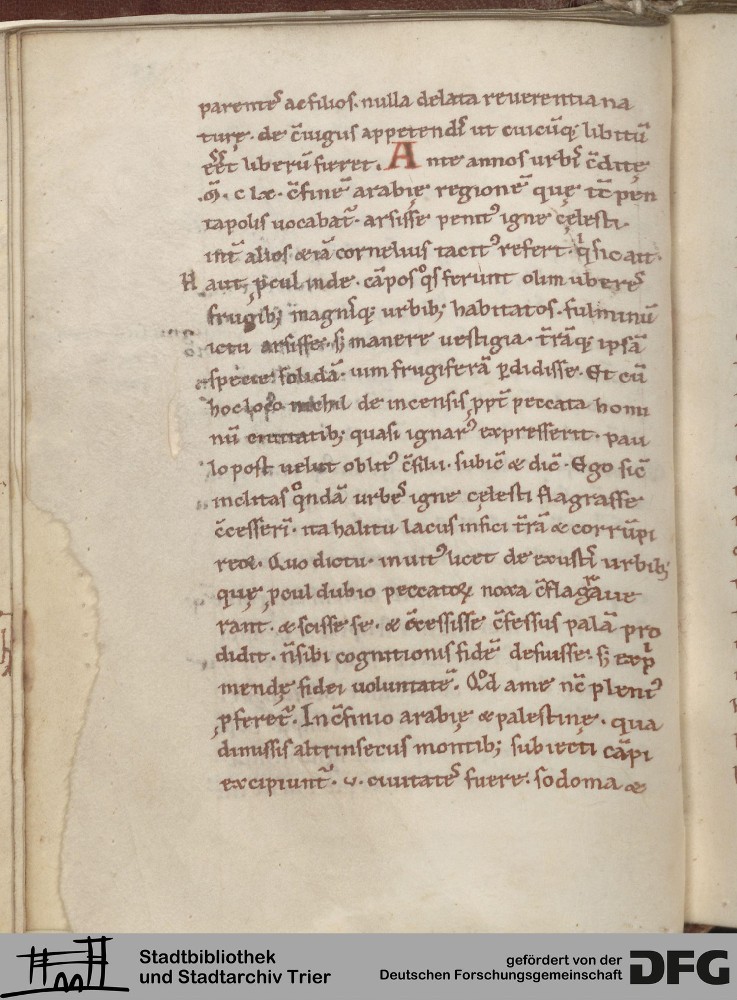 parentes̄ ac filios. nulla delata reuerentia na
turę. de c̄iugiis appetendis ut cuicūq; libitū
eēt liberū fieret. Ante annos urbis c̄ditę
.M̄. c lx. c̄finē arabię regionē quę tc̄ pen
tapolis uocabat̄. arsisse penitꝰ igne cęlesti.
int̄ alios & iā cornelius tacitꝰ refert. q̇ sic ait.
Haut ꝓcul inde. cāpos q°s ferunt olim uberes̄
frugib; magnisq; urbib; habitatos. fulminū
ictu arsisse. s; manere uestigia. t̄rāq; ipsā
specie solidā. uim frugiferā ꝑdidisse. Et cū
hoc loco nichil de incensis ꝓpt̄ peccata homi
nū ciuitatib; quasi ignarꝰ expresserit. pau
lo post uelut oblitꝰ c̄silii. subic̄ & dic̄. Ego sic̄
inclitas q°ndā urbes̄ igne cęlesti flagrasse
c̄cesseri. ita halitu lacus infici t̄rā & corrūpi
reor. Quo dictu. inuitꝰ licet de exustis urbib;
quę ꝓcul dubio peccatoꝝ noxa c̄flagraue
rant. & scisse se. & c̄cessisse c̄fessus palā pro
didit. n̄ sibi cognitionis fidē defuisse. s; expri
mendę fidei uoluntatē. Qd̄ a me nc̄ pleniꝰ
ꝓferet̄. In c̄finio arabię & palestinę. qua
dimissis altrinsecus montib; subiecti cāpi
excipiunt̄. .v. ciuitates̄ fuere. sodoma &
Stadtbibliothek
und Stadtarchiv Trier
gefördert von der
Deutschen Forschungsgemeinschaft
DFG